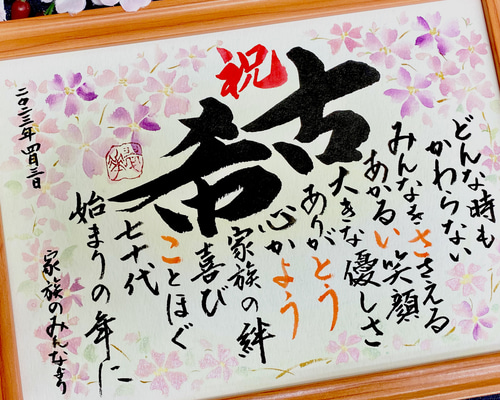 祝
古希
どんな時も
かわらない
みんなをささえる
あかるい笑顔
大きな優しさ
ありがとう
心かよう
家族の絆
喜び
ことほぐ
七十代
始まりの年に
家族のみんなより
二〇二三年 四月三日